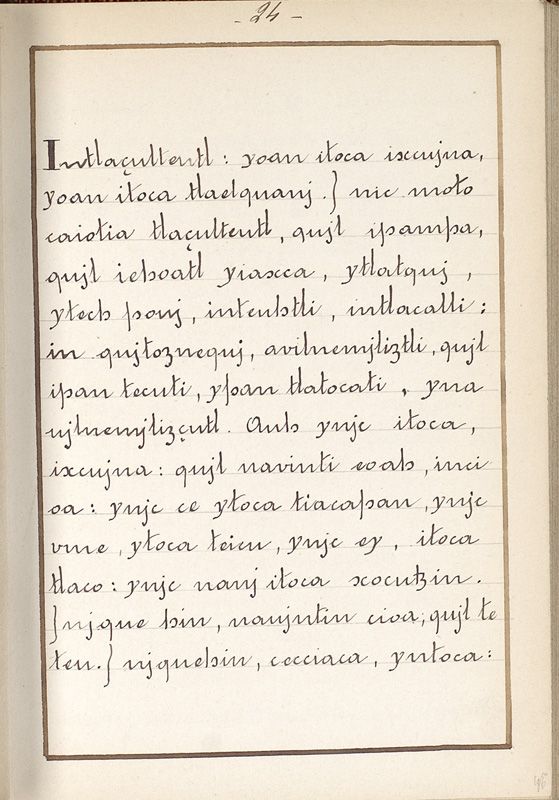 - 24 -
Intlaçulteutl : yoan itoca ixcujna,
yoan itoca tlaelquanj.} nic moto
caiotia tlaçulteutl, qujl ipampa,
qujl iehoatl yiaxca, ytlatquj,
ytech pouj, inteuhtli, intlaçulli:
in qujtoznequj, avilnemjliztli, qujl
ipan tecuti, ypan tlatocati, yna
vjlnemjlizçutl. Auh ynjc itoca,
ixcujna: qujl navinti eoah, inci
oa: ynjc ce ytoca tiacapan, ynjc
vme, ytoca teicu, ynjc ey, itoca
tlaco: ynjc nanj itoca xocutzin.
} njque hin, naujntin cioa, qujl te
teu.} njquehin, cecciaca, yntoca:
46